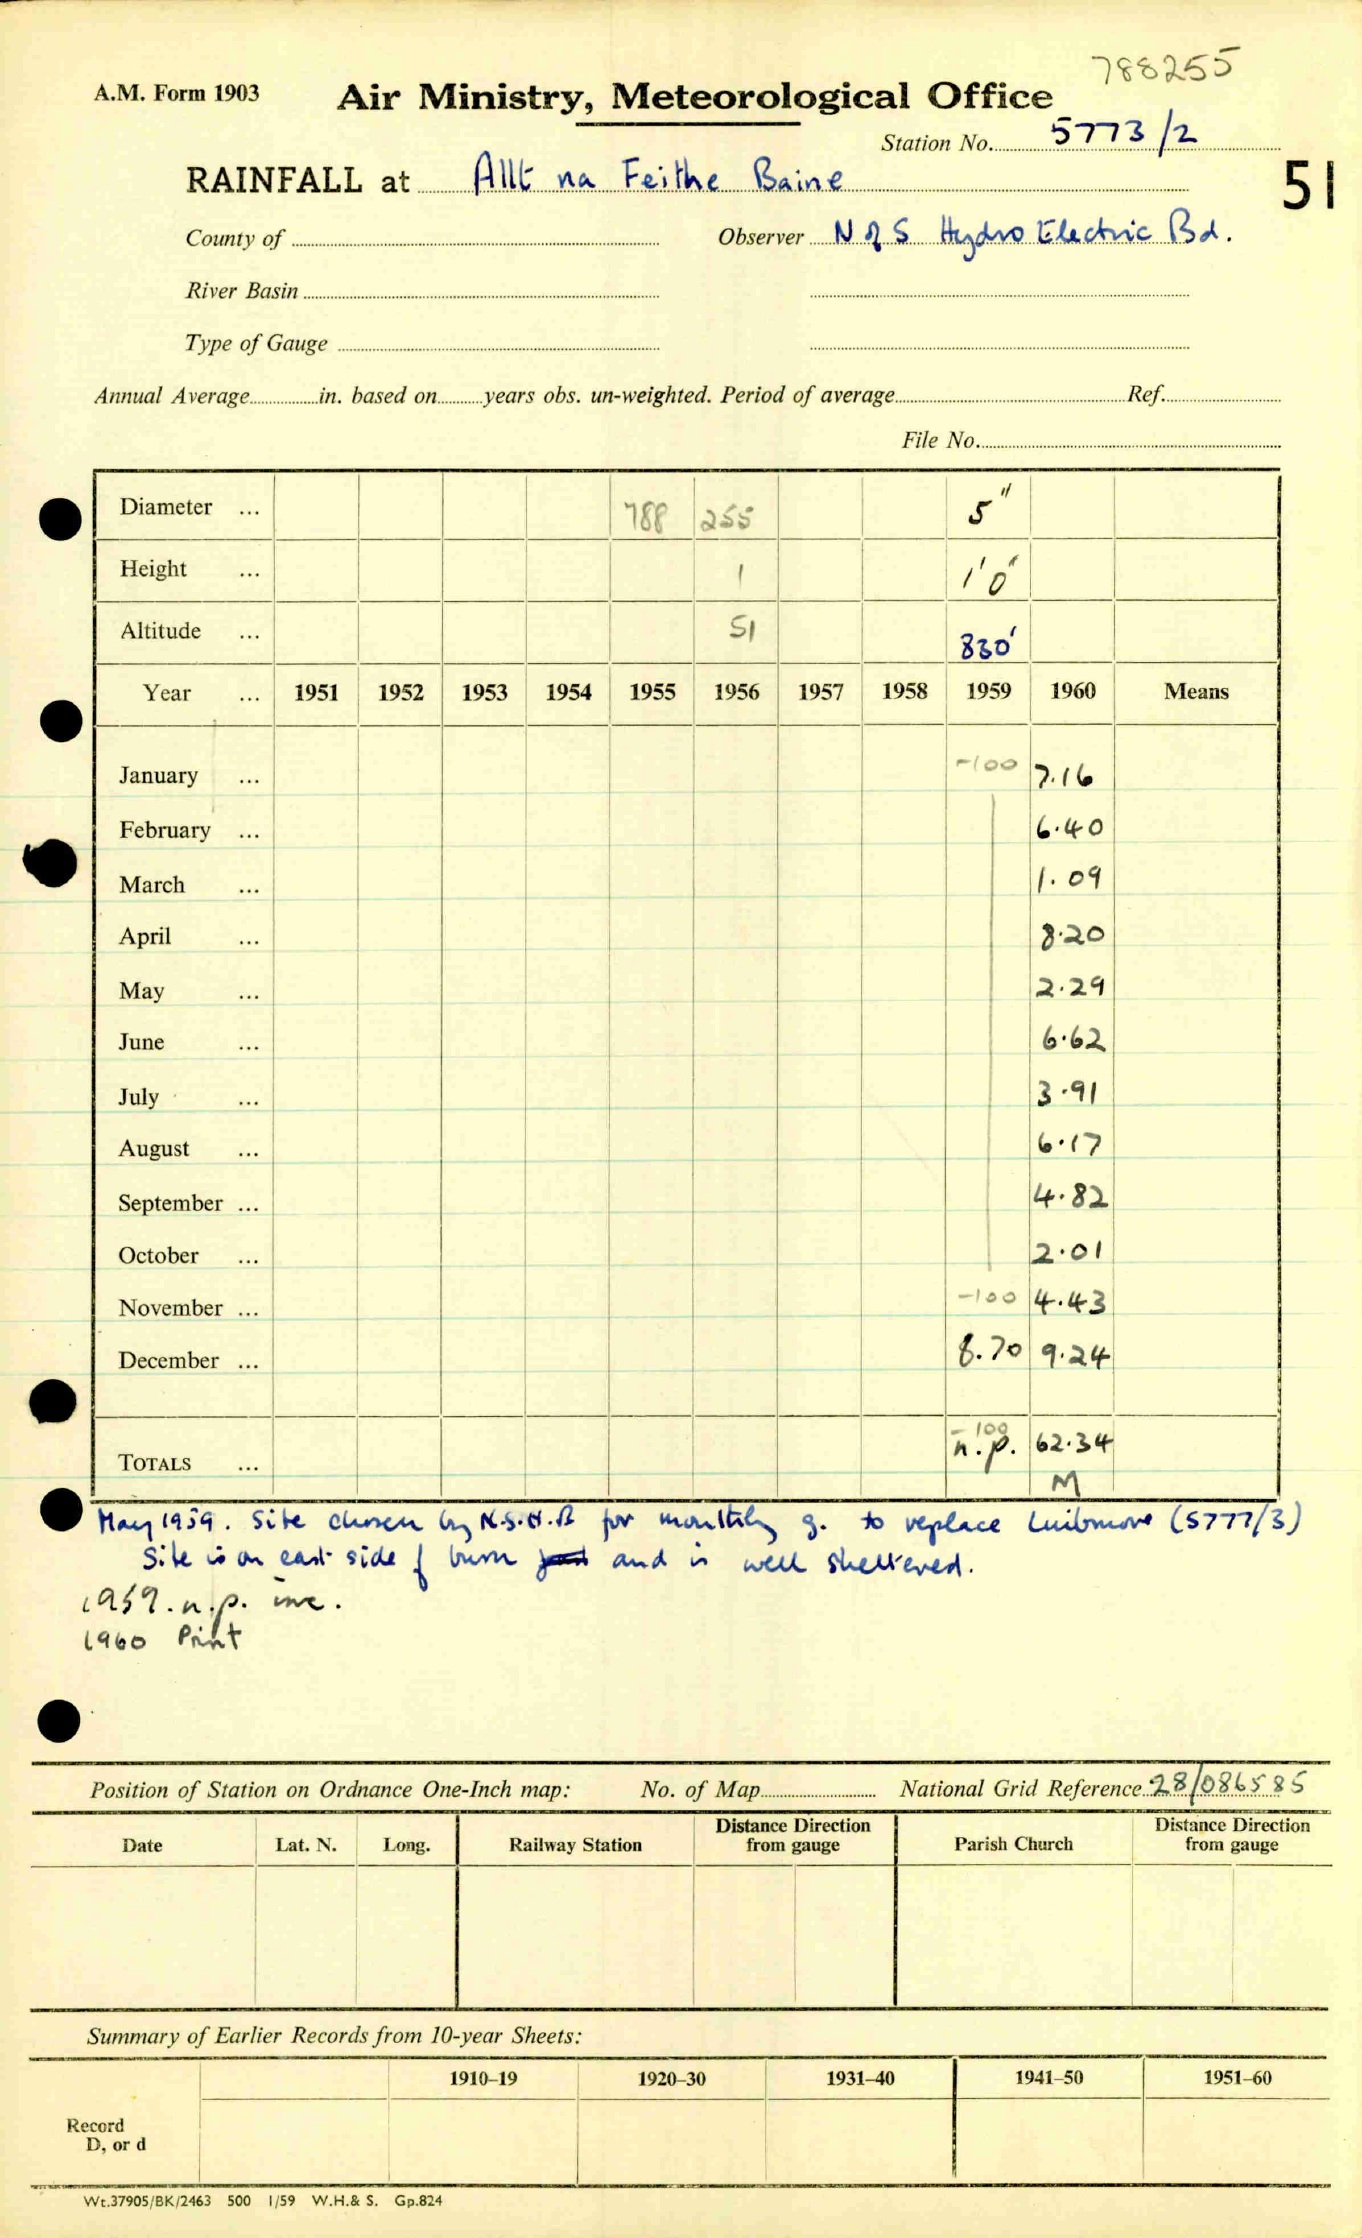 788255
A.M. Form 1903 Air Ministry, Meteorological Office
Station No. 5773/2
RAINFALL at Allt na Feithe Baine 51
County of Observer N of S Hydro Electric Bd.
River Basin
Type of Gauge
Annual Average in. based on years obs. un-weighted. Period of average Ref.
File No.
Diameter ... 788 255 5"
Height ... 1 1'0"
Altitude ... 51 830'
Year ... 1951 1952 1953 1954 1955 1956 1957 1958 1959 1960 Means
January ... -100 7.16
February ... 6.40
March ... 1.09
April ... 8.20
May ... 2.29
June ... 6.62
July ... 3.91
August ... 6.17
September ... 4.82
October ... 2.01
November ... -100 4.43
December ... 8.70 9.24
-100
TOTALS ... n.p. 62.34
M
May 1959. Site chosen by N.S.H.B for monthly g. to replace Luibmore (5777/3)
Site is on east side of burn and is well sheltered.
1959. n.p. inc.
1960 Print
Position of Station on Ordnance One-Inch map: No. of Map National Grid Reference 28/086585
Date Lat. N. Long. Railway Station Distance Direction from gauge Parish Church Distance Direction from gauge
Summary of Earlier Records from 10-year Sheets:
1910-19 1920-30 1931-40 1941-50 1951-60
Record
D, or d
Wt.37905/BK/2463 500 1/59 W.H.& S. Gp.824